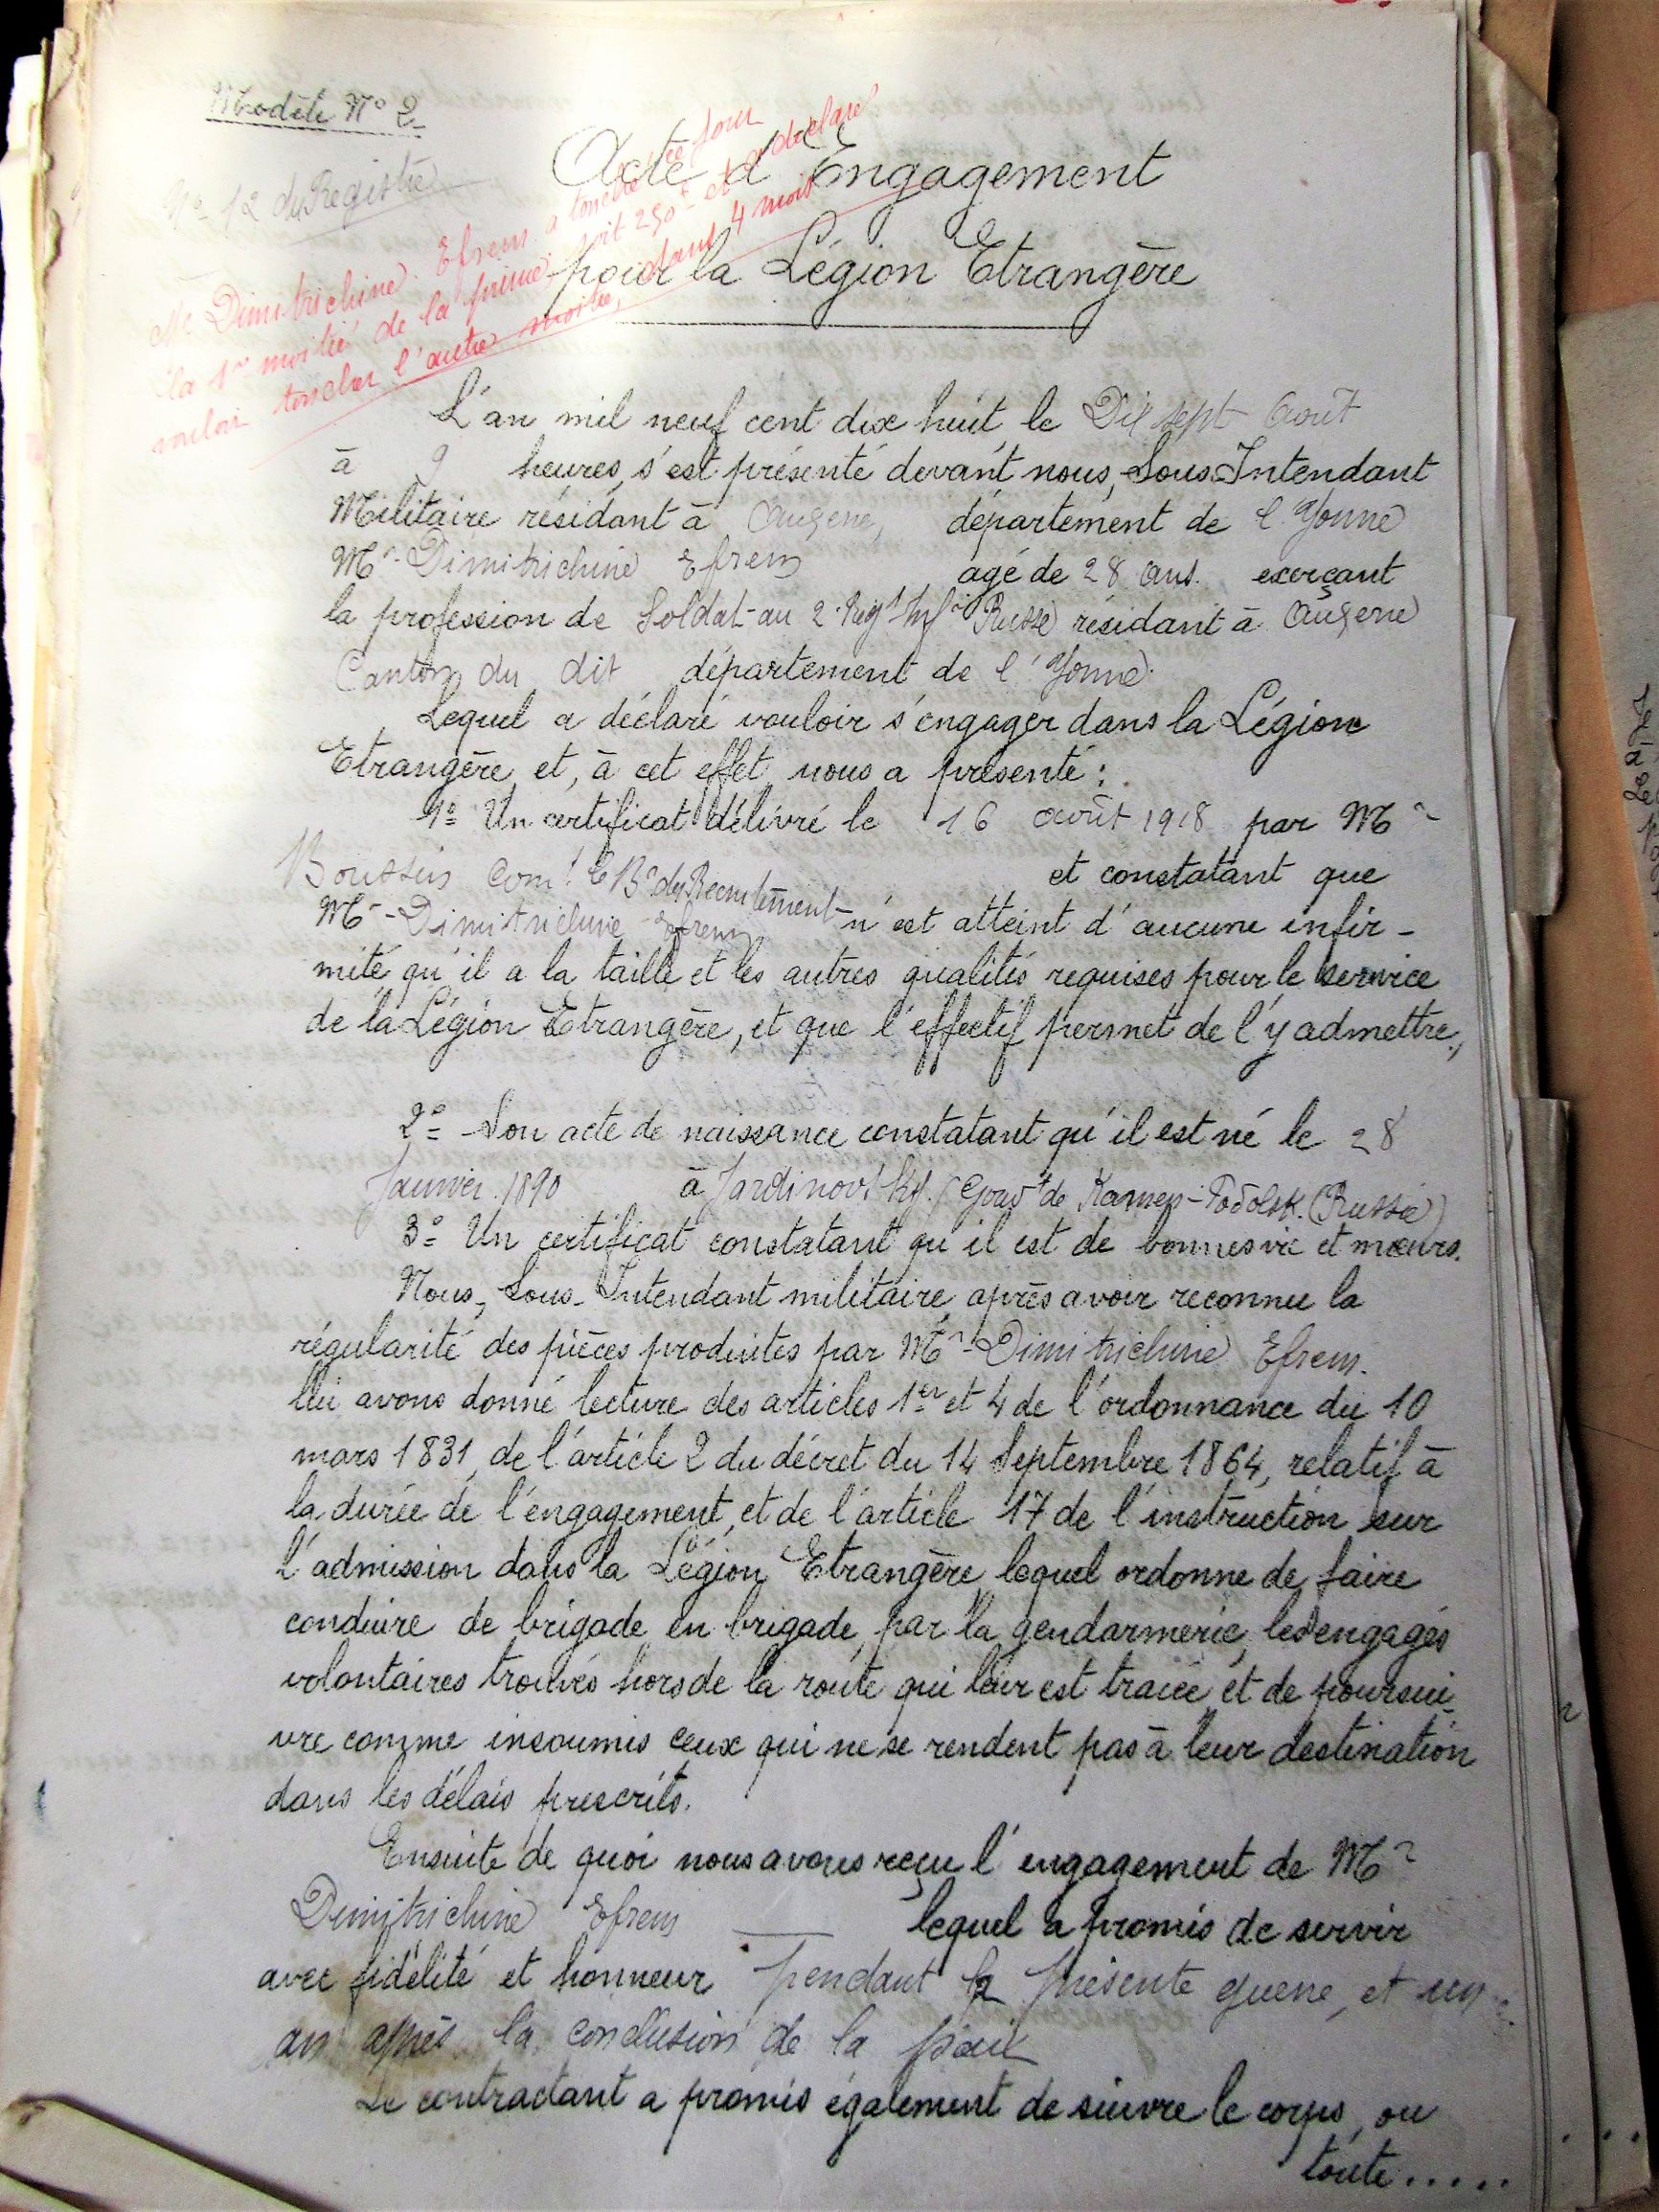 Modèle N° 2
N° 12 du Registre
Acte d'Engagement
pour la Légion Etrangère
Mr Dimitrichine Efrem a touché ce jour
la 1re moitié de la prime, soit 250 f et a déclaré
vouloir toucher l'autre moitié, dans 4 mois
L'an mil neuf cent dix huit, le Dix sept Août
à 9 heures, s'est présenté devant nous, Sous-Intendant
Militaire résidant à département de l'Yonne
Mr Dimitrichine Efrem agé de 28 ans. exerçant
la profession de Soldat au 2e Regt Infie Russe résidant à
Canton du dit département de l'Yonne
Lequel a déclaré vouloir s'engager dans la Légion
Etrangère et, à cet effet, nous a présenté :
1° Un certificat délivré le 16 août 1918 par Mr
Boussin Comt le Bau du Recrutement et constatant que
Mr Dimitrichine Efrem n'est atteint d'aucune infir-
mité qu'il a la taille et les autres qualités requises pour le service
de la Légion Etrangère, et que l'effectif permet de l'y admettre,
2° Son acte de naissance constatant qu'il est né le 28
Janvier 1890 à Jardinovsky (Gouvt de Kamen-Podolsk. (Russie)
3° Un certificat constatant qu'il est de bonnes vie et mœurs.
Nous, Sous-Intendant militaire, après avoir reconnu la
régularité des pièces produites par Mr Dimitrichine Efrem.
lui avons donné lecture des articles 1er et 4 de l'ordonnance du 10
mars 1831, de l'article 2 du décret du 14 Septembre 1864, relatif à
la durée de l'engagement, et de l'article 17 de l'instruction sur
l'admission dans la Légion Etrangère, lequel ordonne de faire
conduire de brigade en brigade, par la gendarmerie, les engagés
volontaires trouvés hors de la route qui leur est tracée et de poursui-
vre comme insoumis ceux qui ne se rendent pas à leur destination
dans les délais prescrits.
Ensuite de quoi nous avons reçu l'engagement de Mr
Dimitrichine Efrem lequel a promis de servir
avec fidélité et honneur pendant la présente guerre, et un
an après la conclusion de la paix
Le contractant a promis également de suivre le corps, ou
toute.....